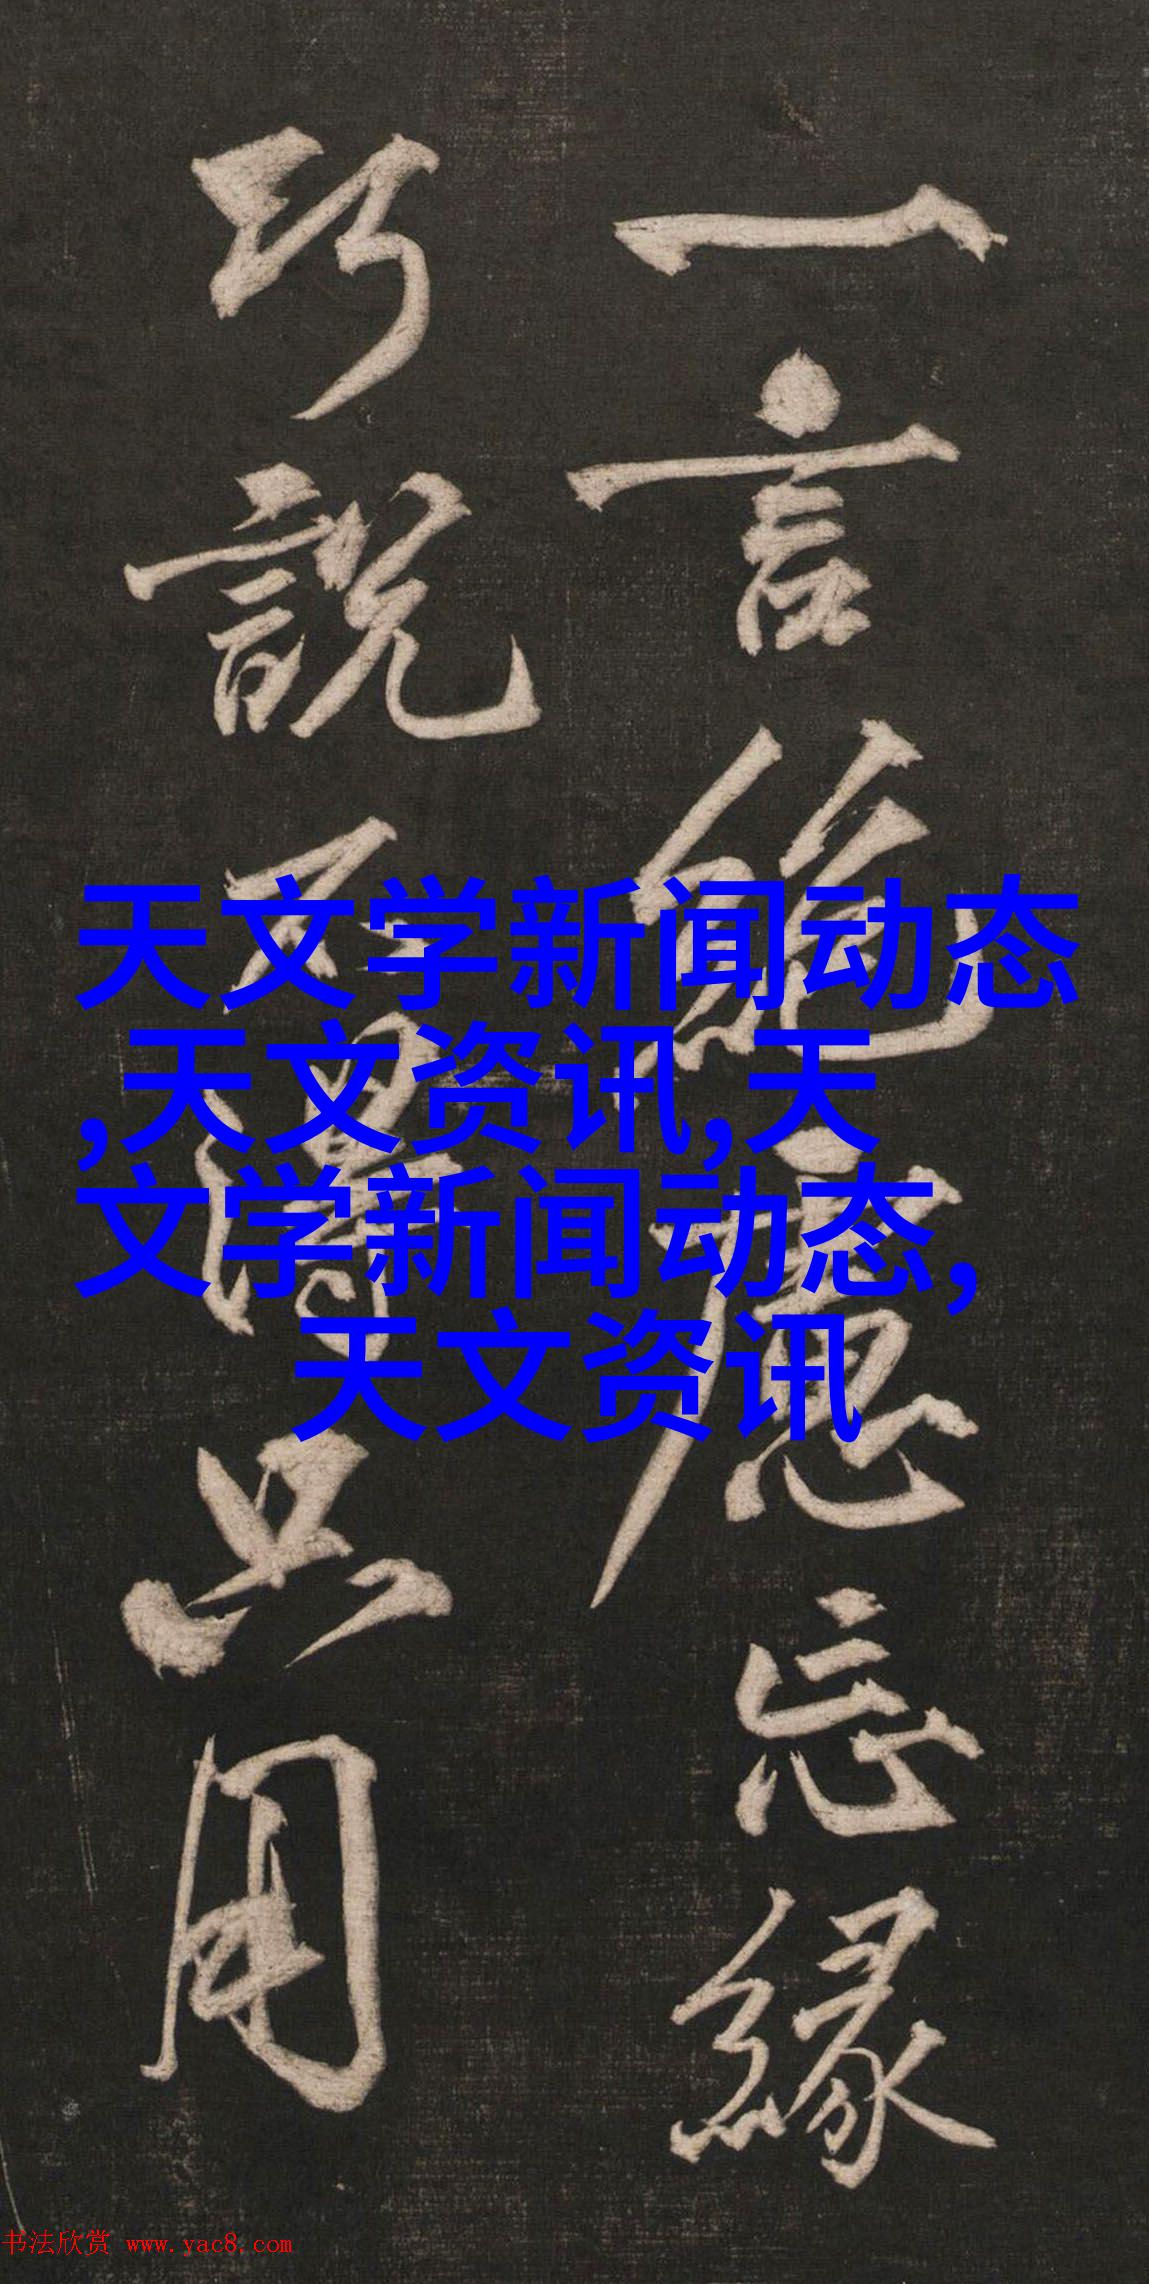 一言絕慮忘緣
巧說不得只用
天文学新闻动态
,天文资讯,天
文学新闻动态,
天文资讯
书法欣赏 www.yac8.com